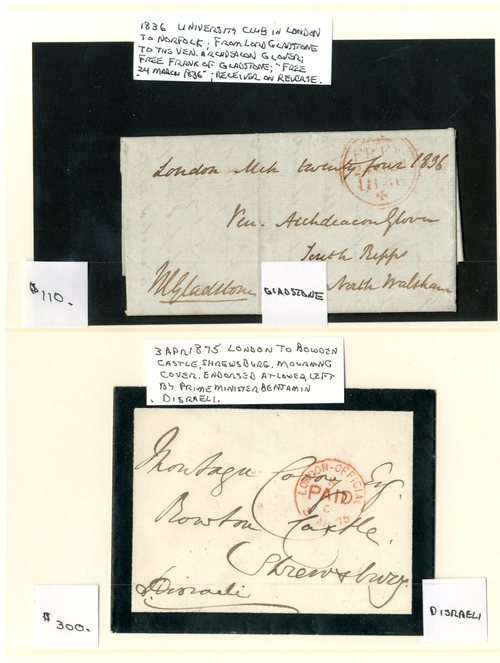 1836 UNIVERSITY CLUB IN LONDON
TO NORFOLK; FROM LORD GLADSTONE
TO THE VEN. ARCHDEACON GLOVER;
FREE FRANK OF GLADSTONE; "FREE
24 MARCH 1836"; RECEIVER ON REVERSE.
FREE
1836
London Mch twenty four 1836
Ven. Archdeacon Glover
South Repps
North Walsham
WGladstone
$110.
GLADSTONE
3 APR 1875 LONDON TO BOWDEN
CASTLE, SHREWSBURG. MOURNING
COVER. ENDORSED AT LOWER LEFT
BY PRIME MINISTER BENJAMIN
DISRAELI.
Montagu Corry Esq.
LONDON-OFFICIAL
PAID
C
75
Bowton Castle.
Shrewsbury
Disraeli
$300.
DISRAELI